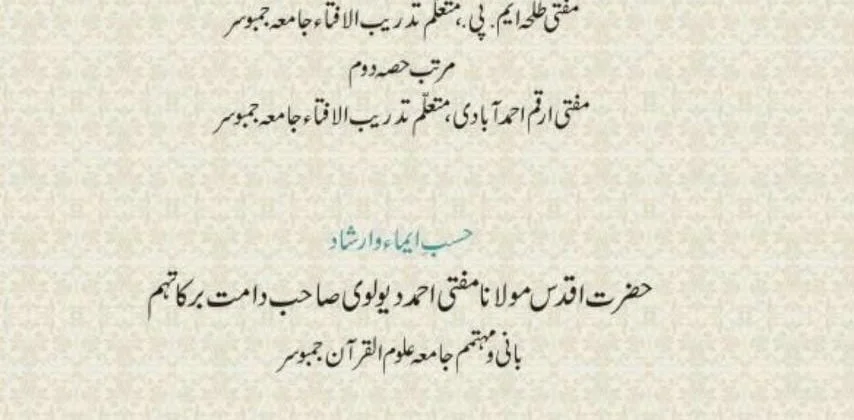 مفتی طلحہ ایم. پی.، متعلّم تدریب الافتاء جامعہ جمبوسر
مرتب حصہ دوم
مفتی ارقم احمدآبادی، متعلّم تدریب الافتاء جامعہ جمبوسر
حسبِ ایماء وارشاد
حضرت اقدس مولانا مفتی احمد دیولوی صاحب دامت برکاتہم
بانی ومہتمم جامعہ علوم القرآن جمبوسر